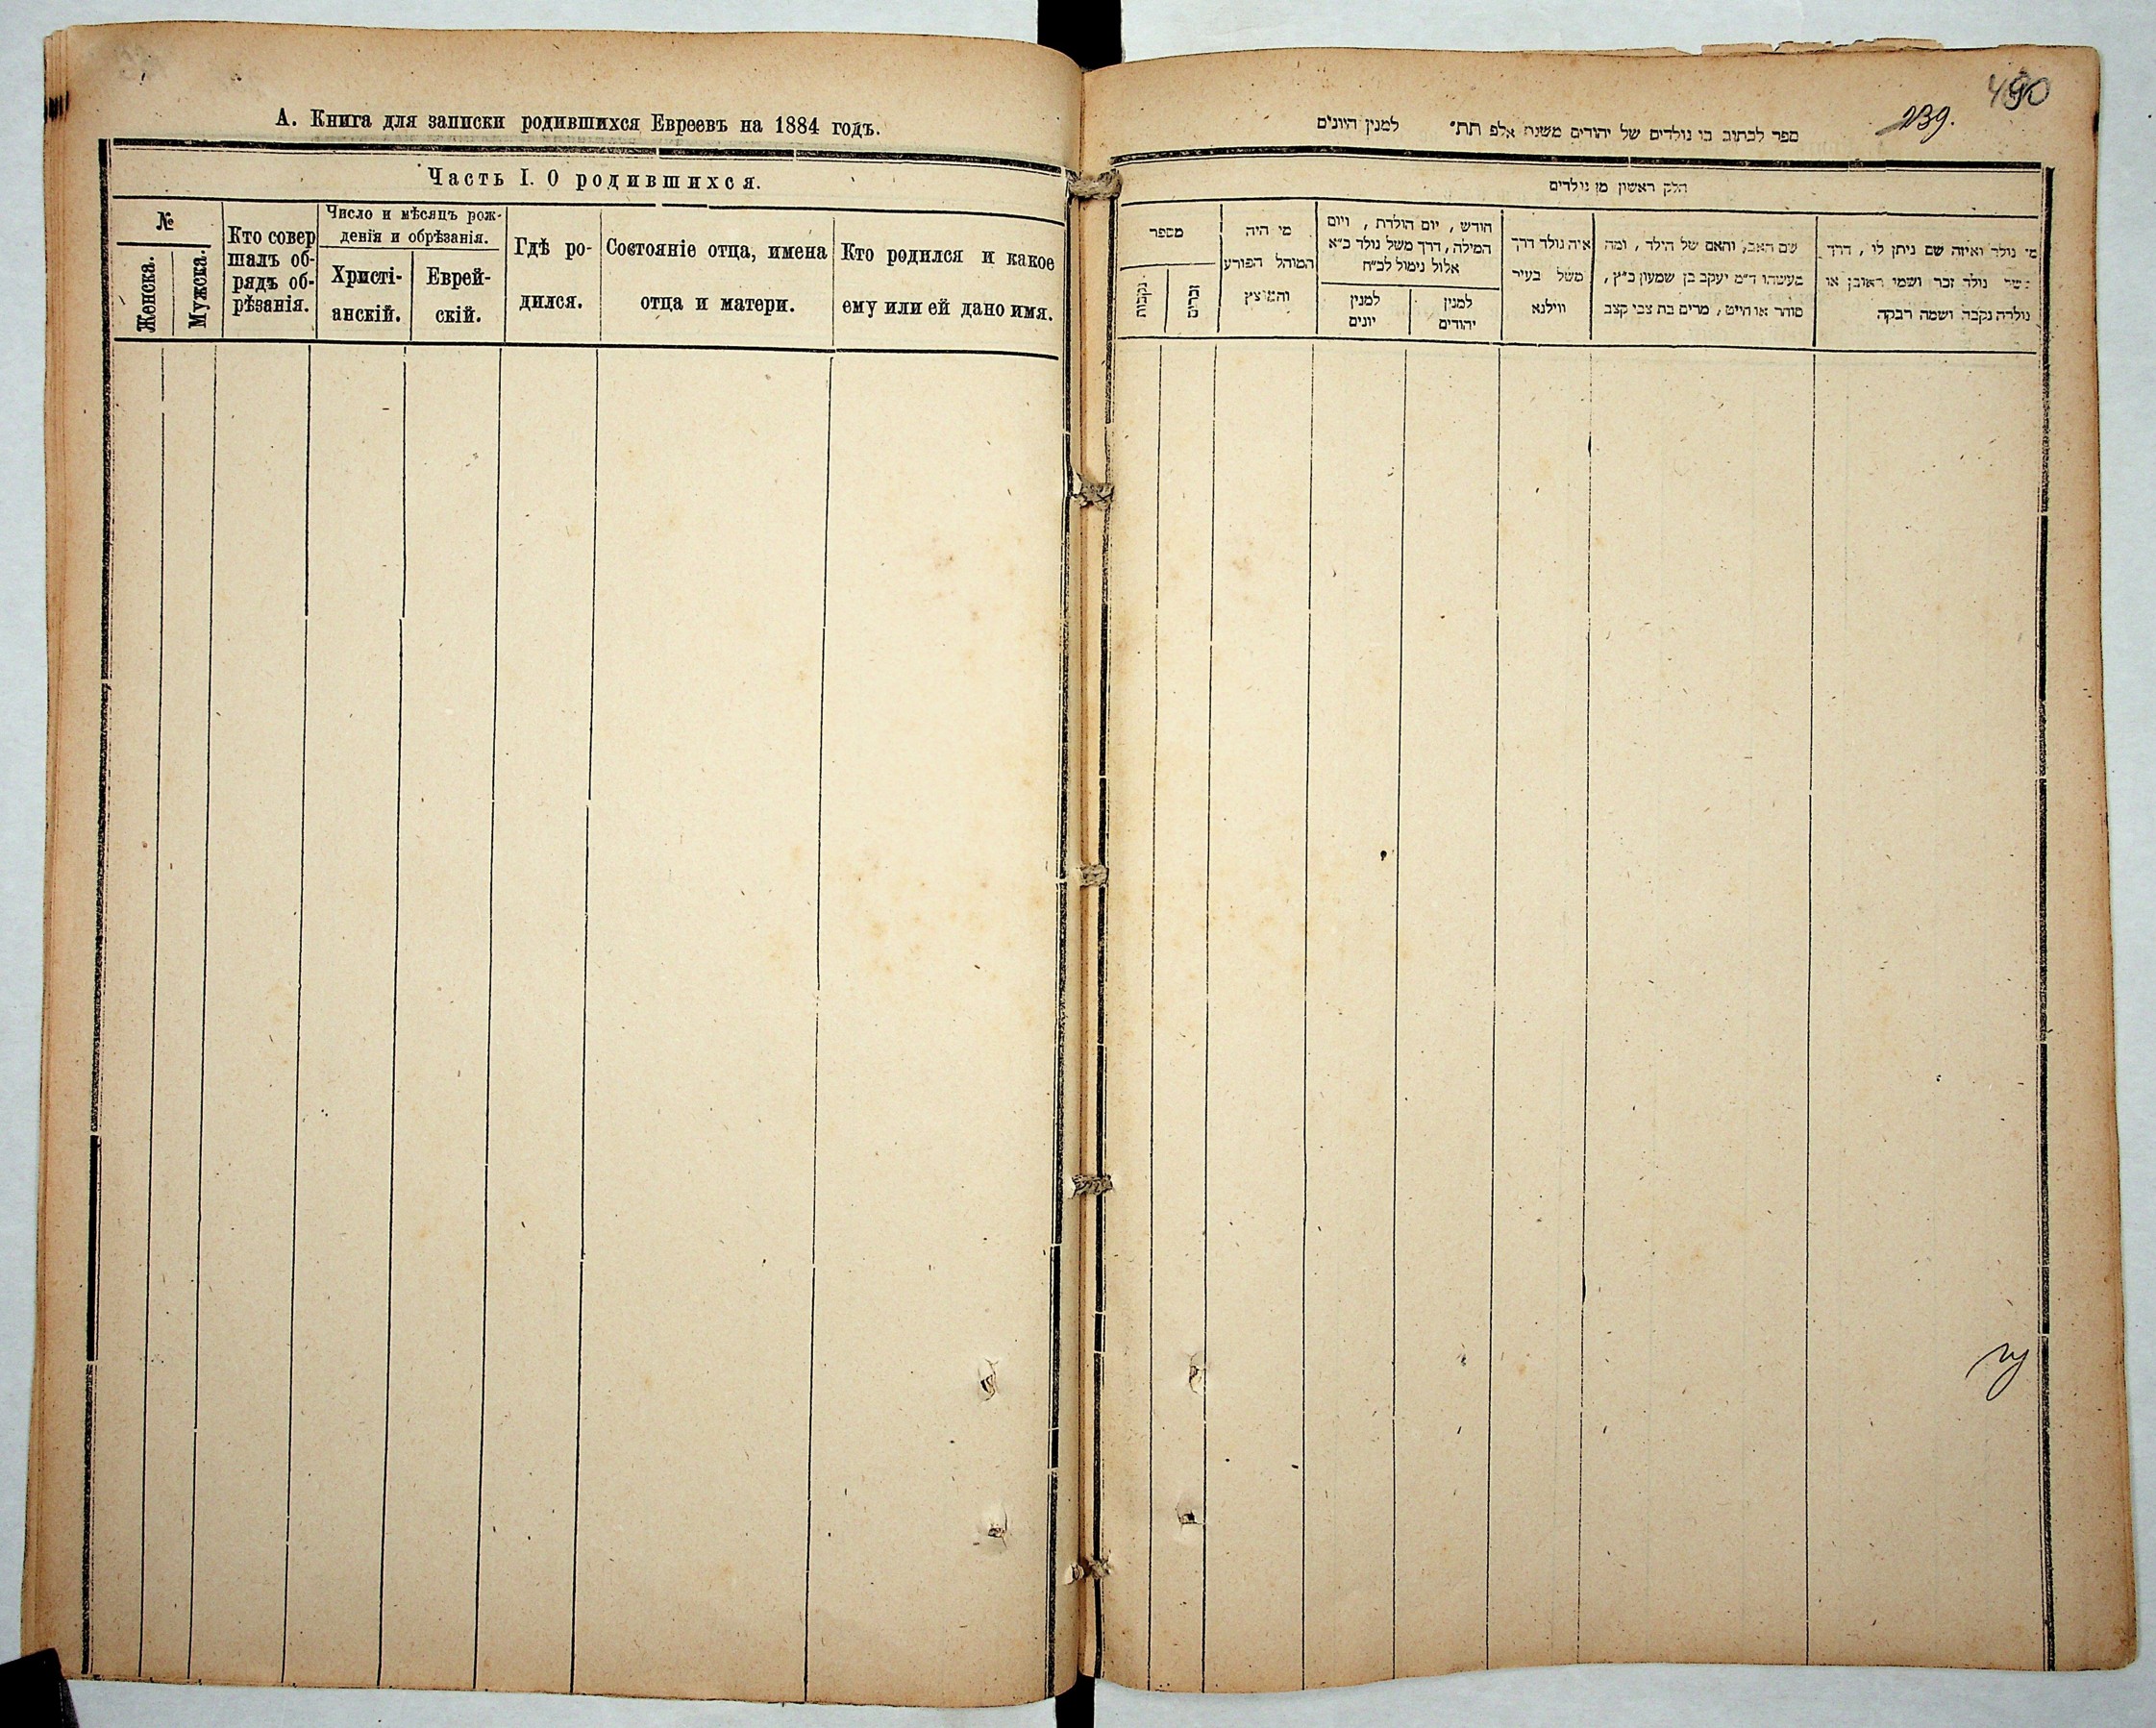 А. Книга для записки родившихся Евреевъ на 1884 годъ.
Часть I. О родившихся.
№
Женска.
Мужска.
Кто совер
шалъ об-
рядъ об-
рѣзанія.
Число и мѣсяцъ рож-
денія и обрѣзанія.
Христі-
анскій.
Еврей-
скій.
Гдѣ ро-
дился.
Состояніе отца, имена
отца и матери.
Кто родился и какое
ему или ей дано имя.
490
239.
ספר לכתוב בו נולדים של יהודים משנת אלפ תת״ למנין היונים
חלק ראשון מן נולדים
מספר
נקבות
זכרים
מי היה
המוהל הפורע
והמוצץ
חודש , יום הולדת , ויום
המילה, דרך משל נולד כ״א
אלול נימול לכ״ח
למנין
יונים
למנין
יהודים
איה נולד דרך
משל בעיר
ווילנא
שם האב, והאם של הילד , ומה
מעשהו ד״מ יעקב בן שמעון כ״ץ ,
סוחר או חייט , מרים בת צבי קצב
מי נולד ואיזה שם ניתן לו , דרך
משל נולד זכר ושמו ראובן או
נולדה נקבה ושמה רבקה